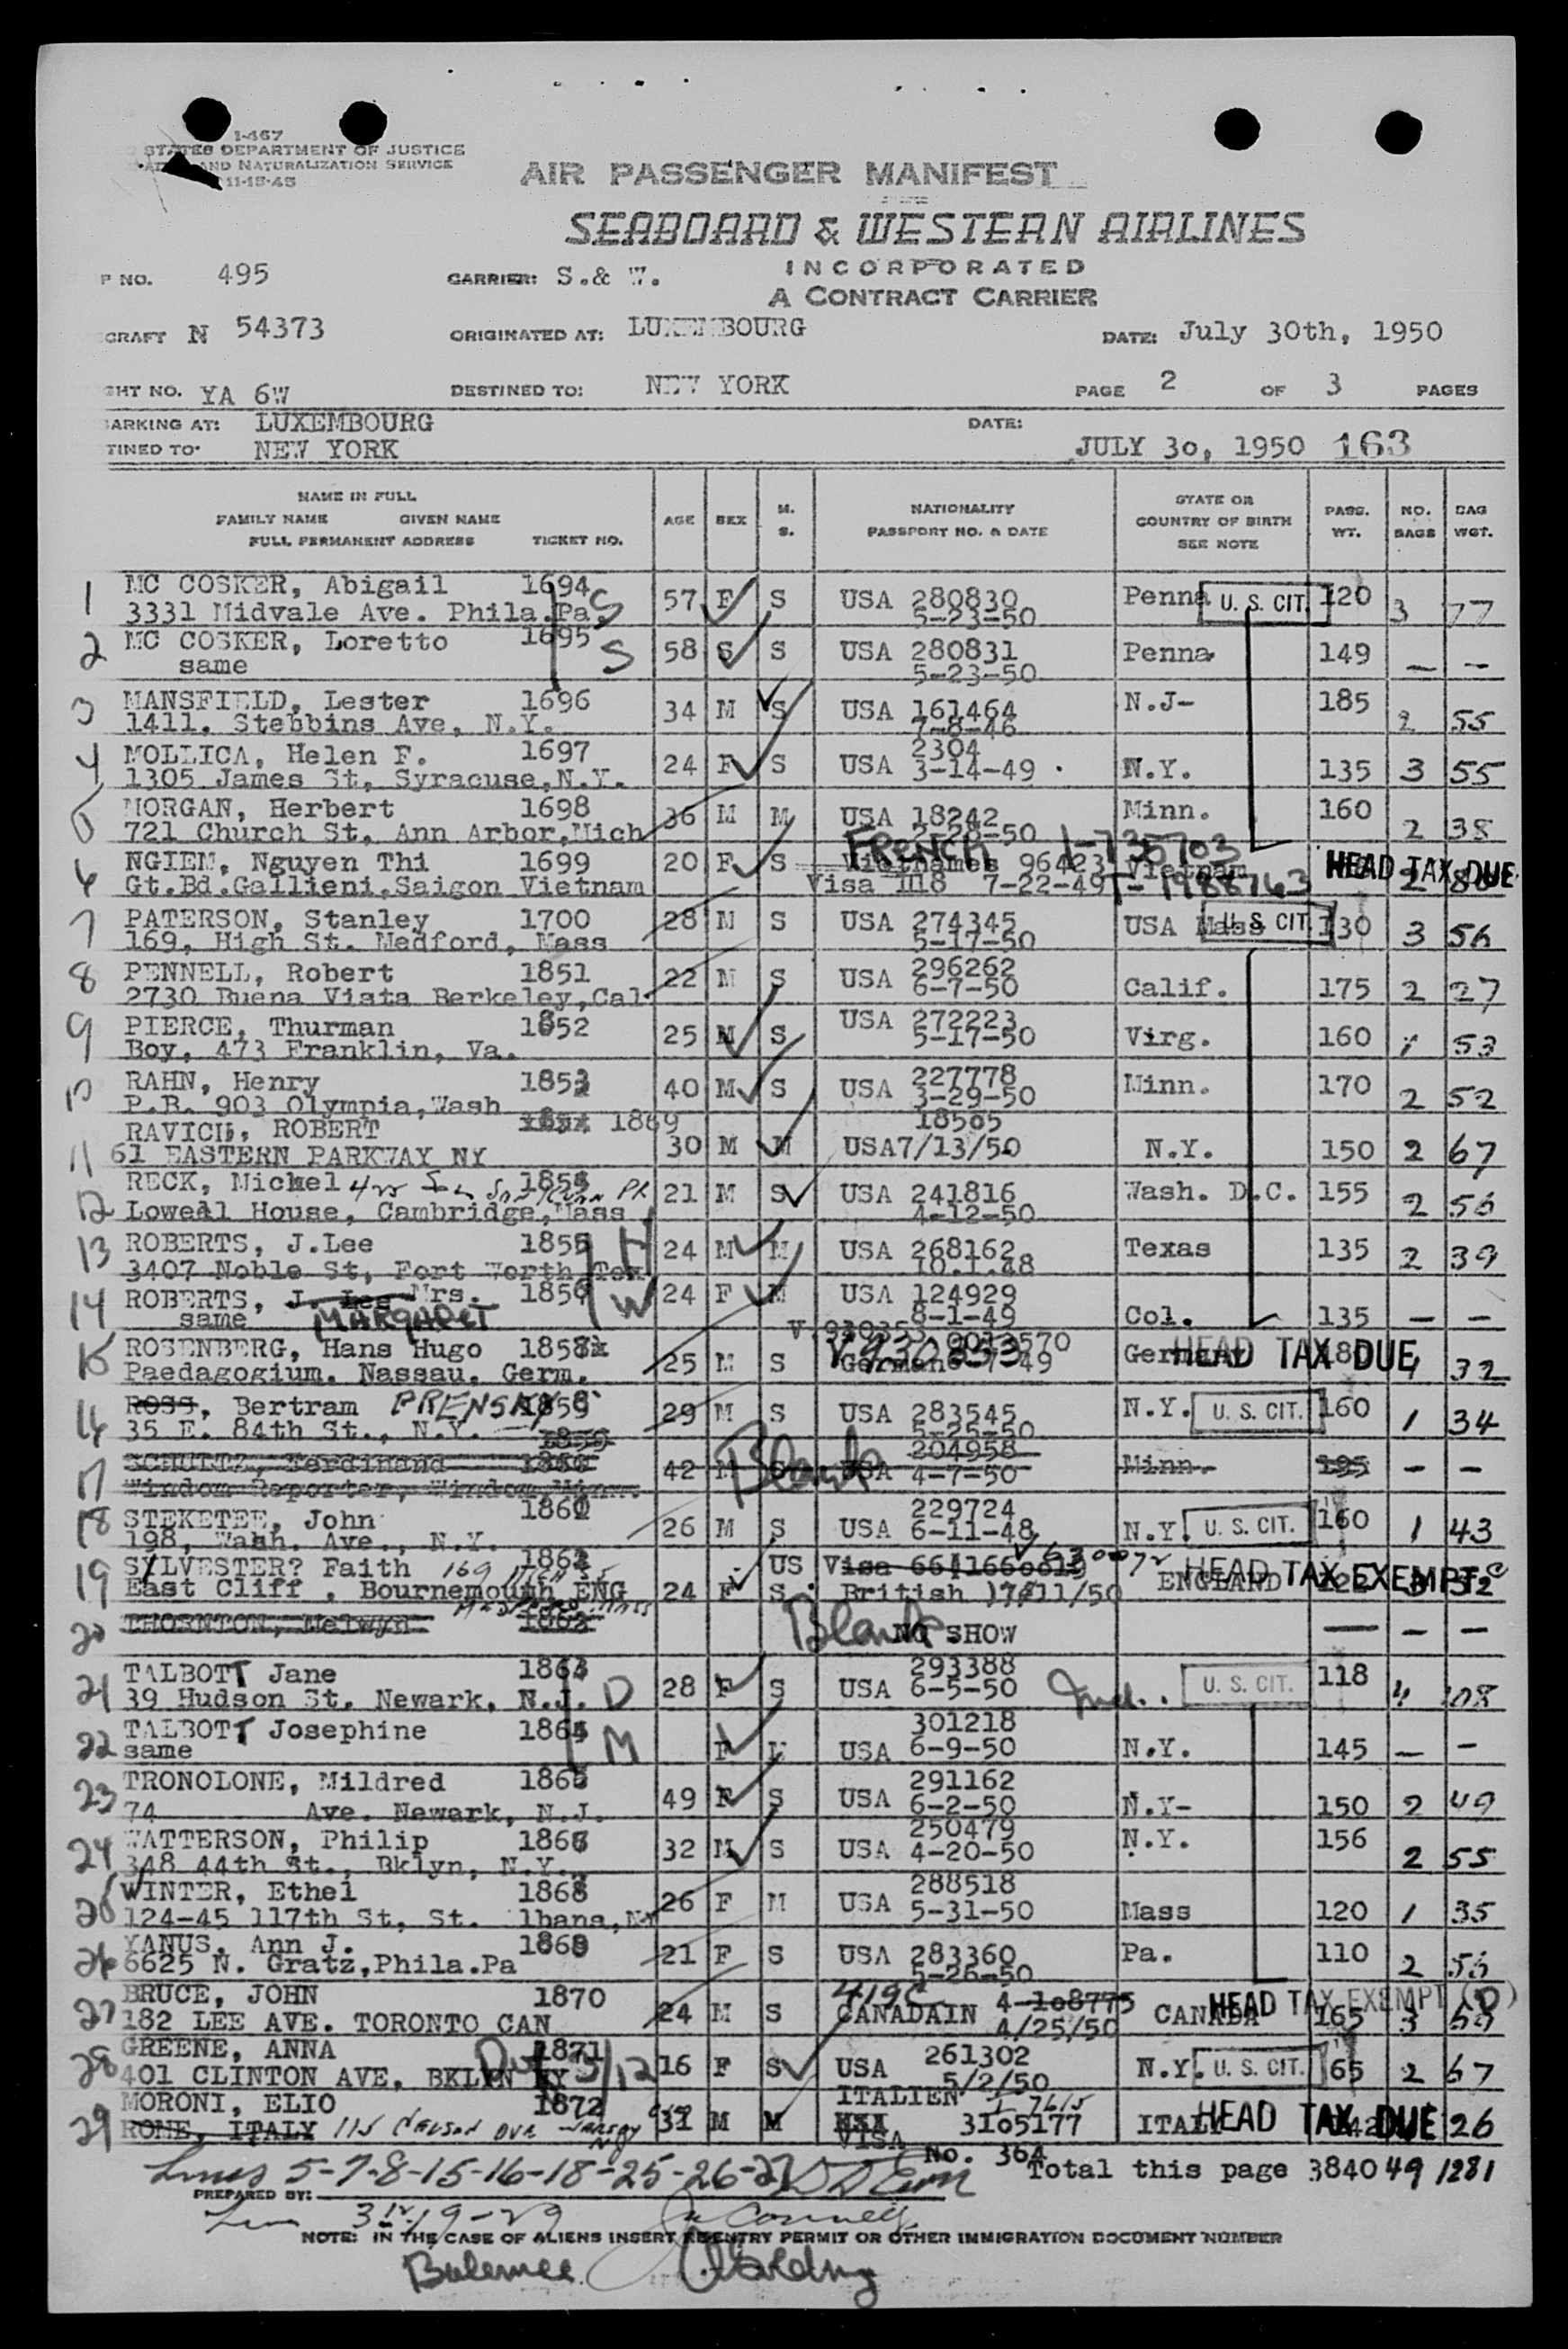 I-467
STATES DEPARTMENT OF JUSTICE
AND NATURALIZATION SERVICE
11-15-45
AIR PASSENGER MANIFEST
SEABOARD & WESTERN AIRLINES
INCORPORATED
A CONTRACT CARRIER
P NO. 495 CARRIER: S.& W.
CRAFT N 54373 ORIGINATED AT: LUXEMBOURG DATE: July 30th, 1950
GHT NO. YA 6W DESTINED TO: NEW YORK PAGE 2 OF 3 PAGES
ARKING AT: LUXEMBOURG DATE:
TINED TO: NEW YORK JULY 30, 1950 163
NAME IN FULL
FAMILY NAME GIVEN NAME
FULL PERMANENT ADDRESS TICKET NO. AGE SEX M. S. NATIONALITY PASSPORT NO. & DATE STATE OR COUNTRY OF BIRTH SEE NOTE PASS. WT. NO. BAGS BAG WGT.
1 MC COSKER, Abigail 1694 S 57 F S USA 280830 Penna U. S. CIT. 120 3 77
3331 Midvale Ave. Phila.Pa. 5-23-50
2 MC COSKER, Loretto 1695 S 58 S S USA 280831 Penna 149 — —
same 5-23-50
3 MANSFIELD, Lester 1696 34 M S USA 161464 N.J- 185 2 55
1411. Stebbins Ave, N.Y. 7-8-46
4 MOLLICA, Helen F. 1697 24 F S USA 2304 N.Y. 135 3 55
1305 James St, Syracuse,N.Y. 3-14-49
5 MORGAN, Herbert 1698 36 M M USA 18242 Minn. 160 2 38
721 Church St, Ann Arbor,Mich 2-28-50
6 NGIEM, Nguyen Thi 1699 20 F S FRENCH Vietnames 96423 I-735703 Vietnam HEAD TAX DUE 2
Gt.Bd.Gallieni,Saigon Vietnam Visa 7-22-49 T-1988763
7 PATERSON, Stanley 1700 28 M S USA 274345 USA Mass U. S. CIT. 130 3 56
169, High St. Medford, Mass 5-17-50
8 PENNELL, Robert 1851 22 M S USA 296262 Calif. 175 2 27
2730 Buena Vista Berkeley,Cal. 6-7-50
9 PIERCE, Thurman 1852 25 M S USA 272223 Virg. 160 1 53
Boy, 473 Franklin, Va. 5-17-50
10 RAHN, Henry 1853 40 M S USA 227778 Minn. 170 2 52
P.B. 903 Olympia,Wash 3-29-50
11 RAVICH, ROBERT 1869 30 M M 18505 N.Y. 150 2 67
61 EASTERN PARKWAY NY USA7/13/50
12 RECK, Michel 1854 21 M S USA 241816 Wash. D.C. 155 2 56
Lowell House, Cambridge,Mass 4-12-50
13 ROBERTS, J.Lee 1855 H 24 M M USA 268162 Texas 135 2 39
3407 Noble St, Fort Worth Tex 10.1.48
14 ROBERTS, J. Lee Mrs. 1856 W 24 F M USA 124929 Col. 135 — —
same MARGARET 8-1-49
15 ROSENBERG, Hans Hugo 1858 25 M S V.930353 German Germany HEAD TAX DUE 1 32
Paedagogium. Nassau. Germ.
16 ROSS, Bertram PRENSKY 29 M S USA 283545 N.Y. U. S. CIT. 160 1 34
35 E. 84th St., N.Y. 5-25-50
17 SCHULTZ, Ferdinand 42 M S Blank USA 204958 Minn. 195 — —
Windom Reporter, Windom,Minn. 4-7-50
18 STEKETEE, John 26 M S USA 229724 N.Y. U. S. CIT. 160 1 43
198, Wash. Ave., N.Y. 6-11-48
19 SYLVESTER? Faith 24 F S US Visa ENGLAND HEAD TAX EXEMPT 32
East Cliff , Bournemouth ENG British
20 THORNTON, Melwyn Blank NO SHOW — — —
21 TALBOTT Jane 1863 D 28 F S USA 293388 Ind. U. S. CIT. 118 4 108
39 Hudson St. Newark, N.J. 6-5-50
22 TALBOTT Josephine 1864 M F USA 301218 N.Y. 145 — —
same 6-9-50
23 TRONOLONE, Mildred 1865 49 F S USA 291162 N.Y- 150 2 49
74 Ave. Newark, N.J. 6-2-50
24 WATTERSON, Philip 1866 32 M S USA 250479 N.Y. 156 2 55
348 44th St., Bklyn, N.Y. 4-20-50
25 WINTER, Ethel 1868 26 F M USA 288518 Mass 120 1 35
124-45 117th St, St. lbans,NY 5-31-50
26 YANUS, Ann J. 21 F S USA 283360 Pa. 110 2 56
6625 N. Gratz,Phila.Pa 5-26-50
27 BRUCE, JOHN 1870 24 M S CANADAIN 4-108775 CANADA HEAD TAX EXEMPT (D) 165 3 59
182 LEE AVE. TORONTO CAN 4/25/50
28 GREENE, ANNA 1871 16 F S USA 261302 N.Y. U. S. CIT. 165 2 67
401 CLINTON AVE, BKLYN NY 5/2/50
29 MORONI, ELIO 1872 31 M M ITALIEN 3105177 ITALY HEAD TAX DUE 26
ROME, ITALY VISA No. 364
Lines 5-7-8-15-16-18-25-26-27 Total this page 3840 49 1281
PREPARED BY:
NOTE: IN THE CASE OF ALIENS INSERT RE-ENTRY PERMIT OR OTHER IMMIGRATION DOCUMENT NUMBER